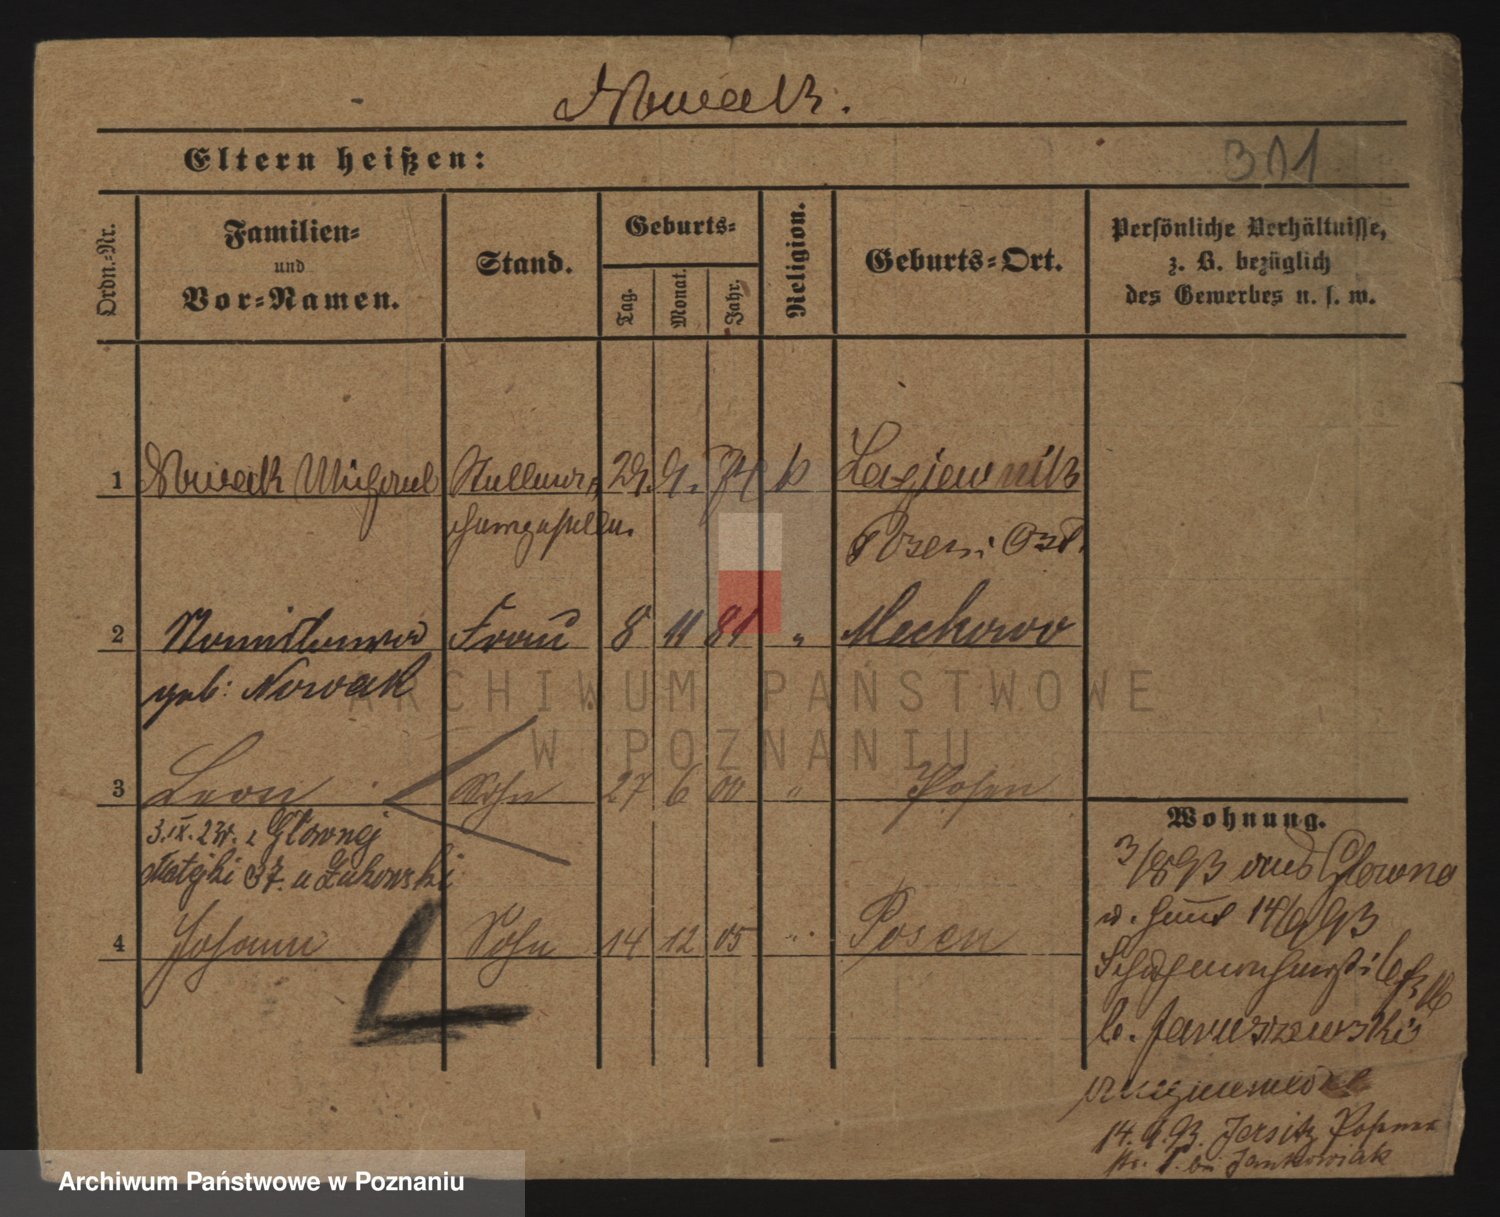 Nowak.
301
Eltern heißen:
Ordn.-Nr.
Familien-
und
Vor-Namen.
Stand.
Geburts-
Tag.
Monat.
Jahr.
Religion.
Geburts-Ort.
Persönliche Verhältnisse,
z. B. bezüglich
des Gewerbes u. s. w.
1 Nowak Michael 29. 9. 74 k
Posen Ost.
2 Frau 8 11 81 " Mechowo
geb: Nowak
3 Leon Sohn 27 6 00 " Posen
3.IX.23r. z Głównej
Matejki 37. u Żukowski
4 Johann Sohn 14 12 05 " Posen
Wohnung.
3/8 93 Glowno
14/9 93
b. Jaruszewski
14. 9. 93. Jersitz Posener
str. bei Jankowiak
ARCHIWUM PAŃSTWOWE
W POZNANIU
Archiwum Państwowe w Poznaniu